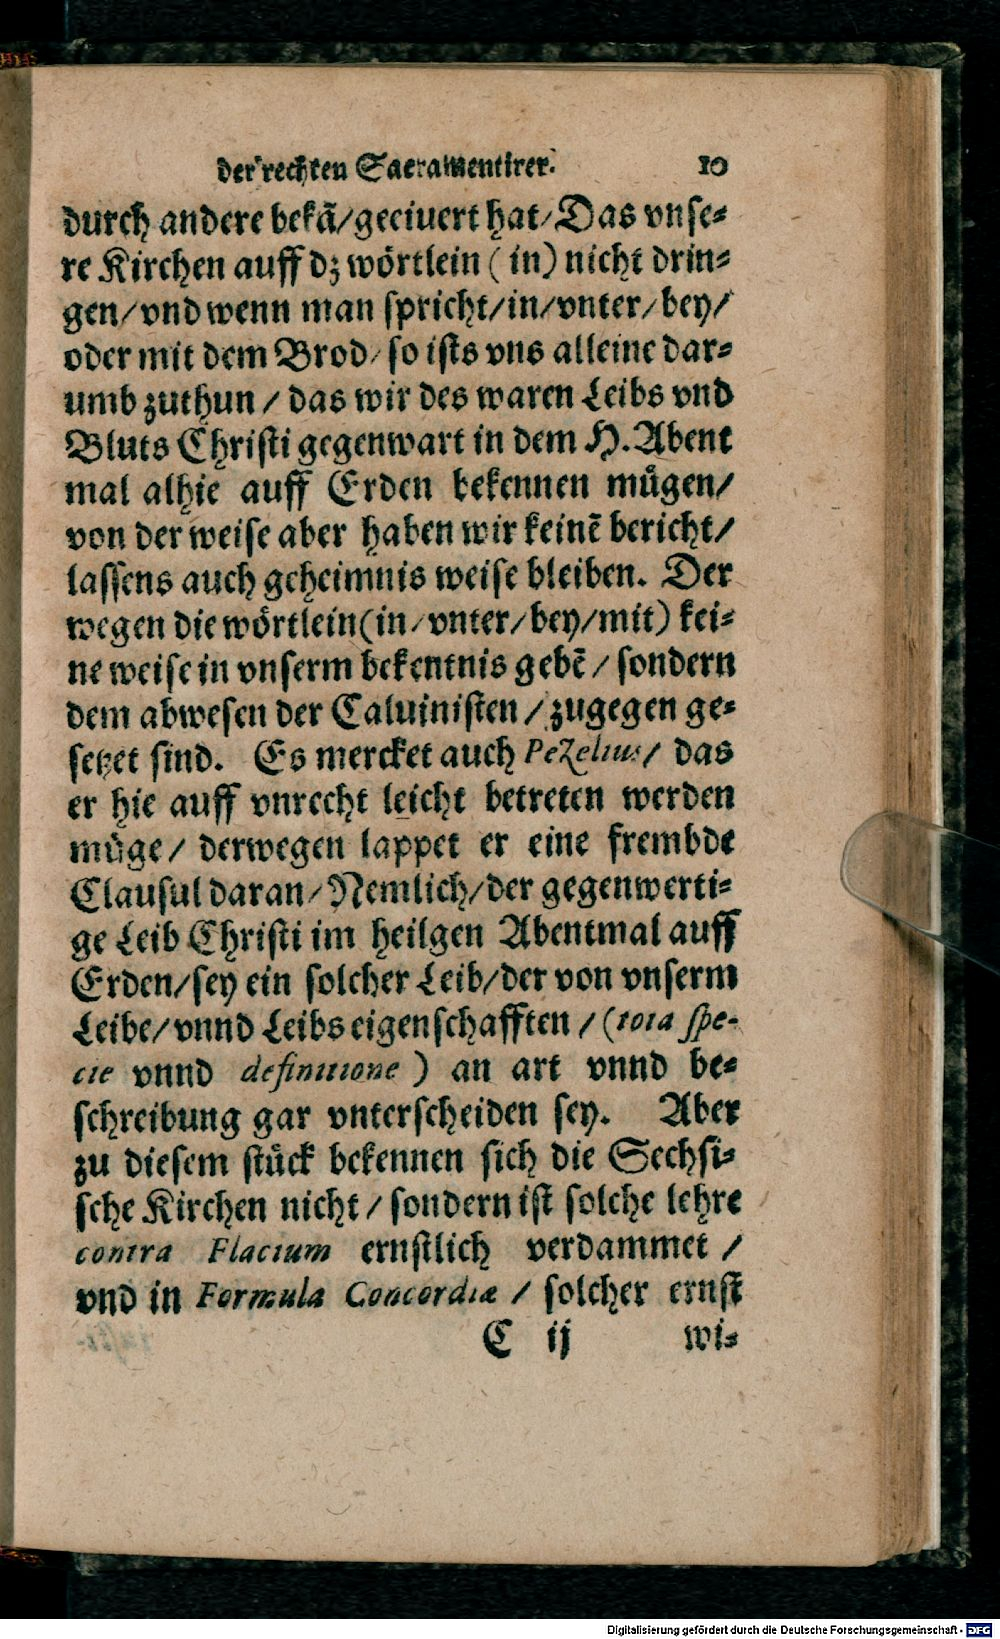 der rechten Sacramentirer. 10
durch andere bekã/geciuert hat/Das vnse-
re Kirchen auff dz wörtlein (in) nicht drin-
gen/vnd wenn man spricht/in/vnter/bey/
oder mit dem Brod/so ists vns alleine dar-
umb zuthun / das wir des waren Leibs vnd
Bluts Christi gegenwart in dem H. Abent
mal alhie auff Erden bekennen mügen/
von der weise aber haben wir keinẽ bericht/
lassens auch geheimnis weise bleiben. Der
wegen die wörtlein (in/vnter/bey/mit) kei-
ne weise in vnserm bekentnis gebẽ / sondern
dem abwesen der Caluinisten / zugegen ge-
setzet sind. Es mercket auch Pezelius/ das
er hie auff vnrecht leicht betreten werden
müge/ derwegen lappet er eine frembde
Clausul daran/Nemlich/der gegenwerti-
ge Leib Christi im heilgen Abentmal auff
Erden/sey ein solcher Leib/der von vnserm
Leibe/vnnd Leibs eigenschafften / (tota spe-
cie vnnd definitione) an art vnnd be-
schreibung gar vnterscheiden sey. Aber
zu diesem stück bekennen sich die Sechsi-
sche Kirchen nicht / sondern ist solche lehre
contra Flacium ernstlich verdammet /
vnd in Formula Concordiæ / solcher ernst
C ij wi-
Digitalisierung gefördert durch die Deutsche Forschungsgemeinschaft - DFG